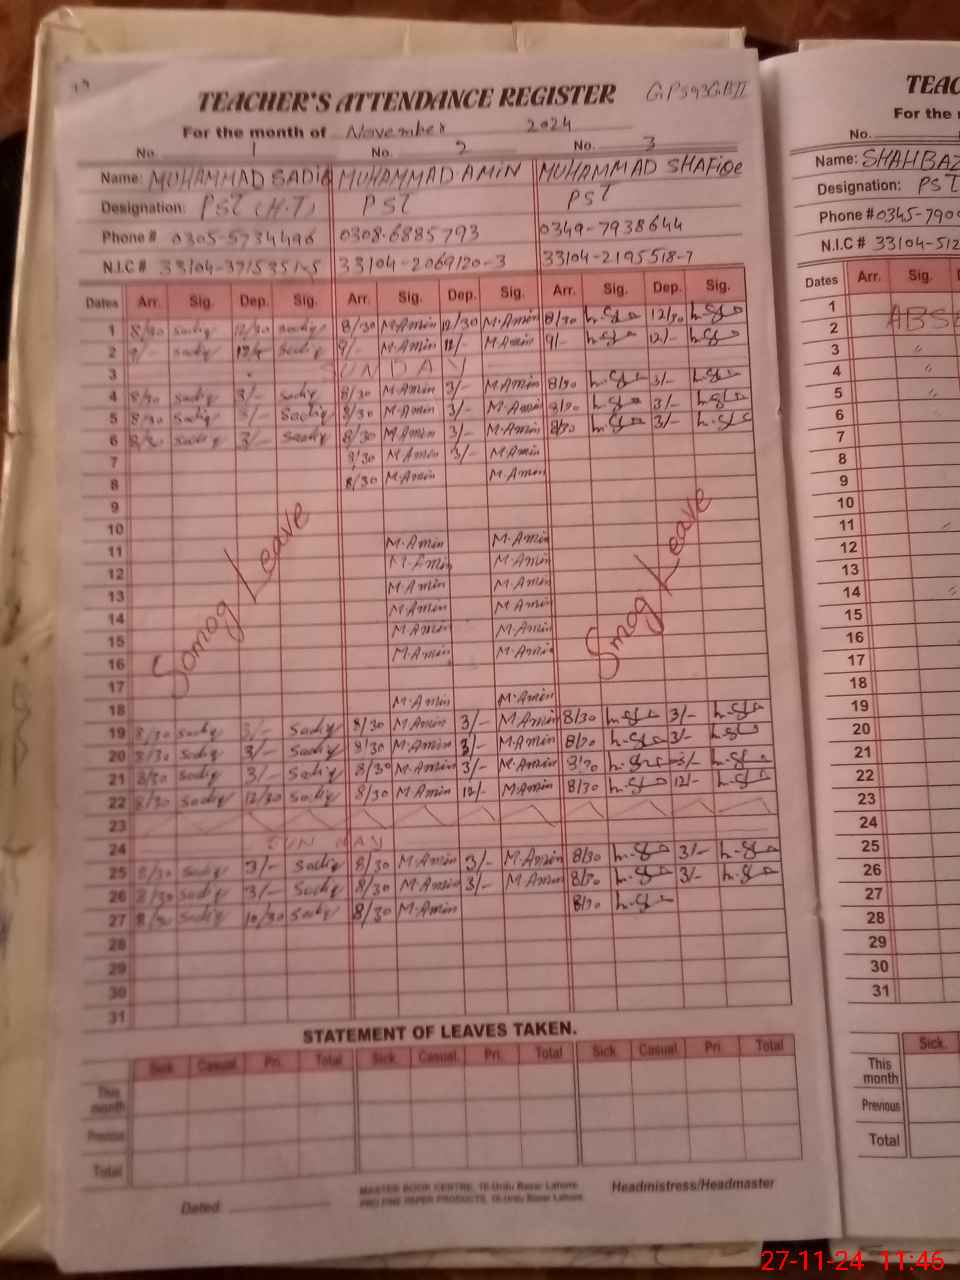 TEACHER'S ATTENDANCE REGISTER
For the month of November 2024
No. 1 No. 2 No. 3
Name: MUHAMMAD SADIQ MUHAMMAD AMIN MUHAMMAD SHAFIQe
Designation: PST (H.T) PST PST
Phone # 0305-5734496 0308-6885793 0349-7938644
N.I.C # 33104-2069120-3 33104-2195518-7
Dates Arr. Sig. Dep. Sig. Arr. Sig. Dep. Sig. Arr. Sig. Dep. Sig.
1 8/30 sadiq 12/30 sadiq 8/30 M.Amin 12/30 M.Amin 8/30 12/30
2 9/- sadiq sadiq 9/- M.Amin 12/- M.Amin 9/- 12/-
3 SUNDAY
4 8/30 sadiq 3/- sadiq 8/30 M.Amin 3/- M.Amin 8/30 3/-
5 8/30 sadiq 3/- sadiq 8/30 M.Amin 3/- M.Amin 8/30 3/-
6 8/30 sadiq 3/- sadiq 8/30 M.Amin 3/- M.Amin 8/30 3/-
7 8/30 M.Amin 3/- M.Amin
8 8/30 M.Amin M.Amin
9
10
11 M.Amin M.Amin
12 M.Amin M.Amin
13 M.Amin M.Amin
14 M.Amin M.Amin
15 M.Amin M.Amin
16 M.Amin M.Amin
17
18 M.Amin M.Amin
Somog Leave
Smog Leave
19 8/30 sadiq 3/- sadiq 8/30 M.Amin 3/- M.Amin 8/30 3/-
20 8/30 sadiq 3/- sadiq 8/30 M.Amin 3/- M.Amin 8/30 3/-
21 8/30 sadiq 3/- sadiq 8/30 M.Amin 3/- M.Amin 8/30 3/-
22 8/30 sadiq 12/30 sadiq 8/30 M.Amin 12/- M.Amin 8/30 12/-
23
24 SUNDAY
25 8/30 sadiq 3/- sadiq 8/30 M.Amin 3/- M.Amin 8/30 3/-
26 8/30 sadiq 3/- sadiq 8/30 M.Amin 3/- M.Amin 8/30 3/-
27 8/30 sadiq 10/30 sadiq 8/30 M.Amin 8/30
28
29
30
31
STATEMENT OF LEAVES TAKEN.
Sick Casual Pri. Total Sick Casual Pri. Total Sick Casual Pri. Total
This month
Previous
Total
Dated
MASTER BOOK CENTRE, 16-Urdu Bazar Lahore.
PRO.FINE PAPER PRODUCTS, 16-Urdu Bazar Lahore.
Headmistress/Headmaster
TEAC
For the
No.
Name: SHAHBAZ
Designation: PST
Phone # 0345-790
N.I.C # 33104-512
Dates Arr. Sig.
1
2 ABS
3
4
5
6
7
8
9
10
11
12
13
14
15
16
17
18
19
20
21
22
23
24
25
26
27
28
29
30
31
Sick.
This month
Previous
Total
27-11-24 11:46